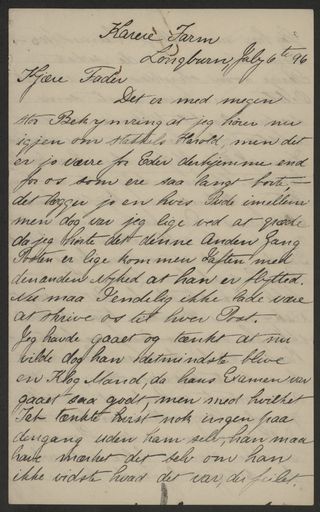 Karere Farm
Longburn, July 6te 96
Kjære Fader
Det er med megen
stor Bekymring at jeg hører nu
igjen om stakkels Harold, men det
er jo værre for Eder derhjemme end
for os som ere saa langt borte,
det lægger jo en hvis Pude imellem
men dog var jeg lige ved at græde
da jeg hørte det denne Anden Gang
Posten er lige kommen Iaften med
den anden Nyhed at han er flytted.
Nu maa I endelig ikke lade være
at skrive os til hver Post.
Jeg havde gaaet og tænkt at nu
vilde dog han idetmindste blive
en Klog Mand, da hans Examen var
gaaet saa godt, men mod hvilket
Tab tænkte hvist nok ingen paa
dengang uden ham selv, han maa
have mærket det selv om han
ikke vidste hvad det var, der feilet.